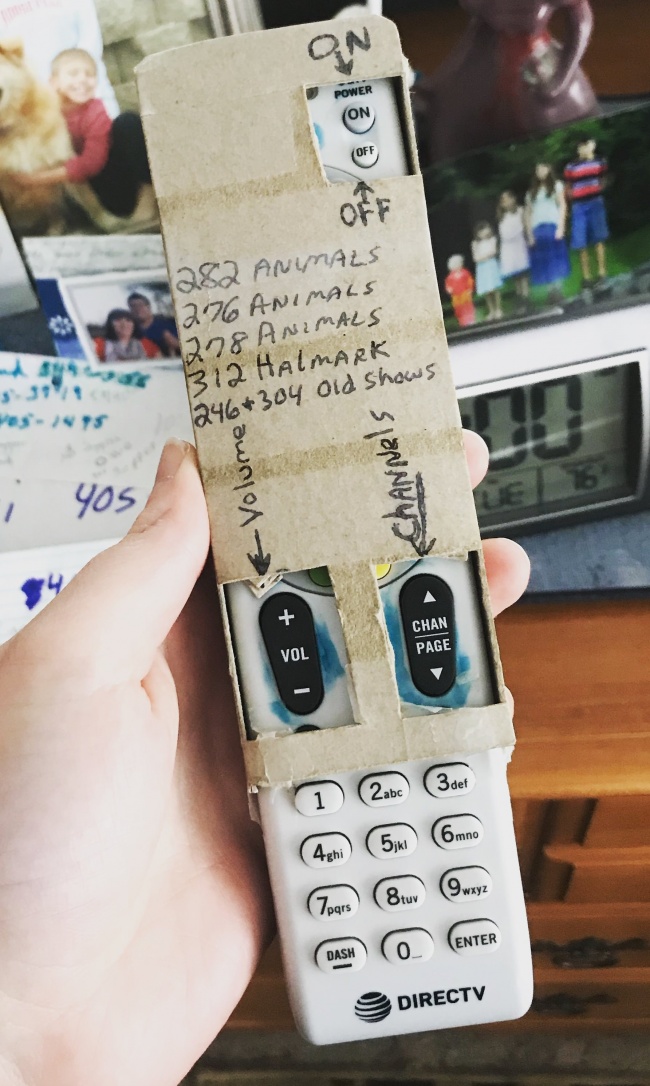 ON
POWER
ON
OFF
OFF
282 ANIMALS
276 ANIMALS
278 ANIMALS
312 HALMARK
246+304 Old Shows
Volume
CHANNELS
+
VOL
−
CHAN
PAGE
1
2abc
3def
4ghi
5jkl
6mno
7pqrs
8tuv
9wxyz
DASH
0
ENTER
DIRECTV
405-1495
405
:00
76°